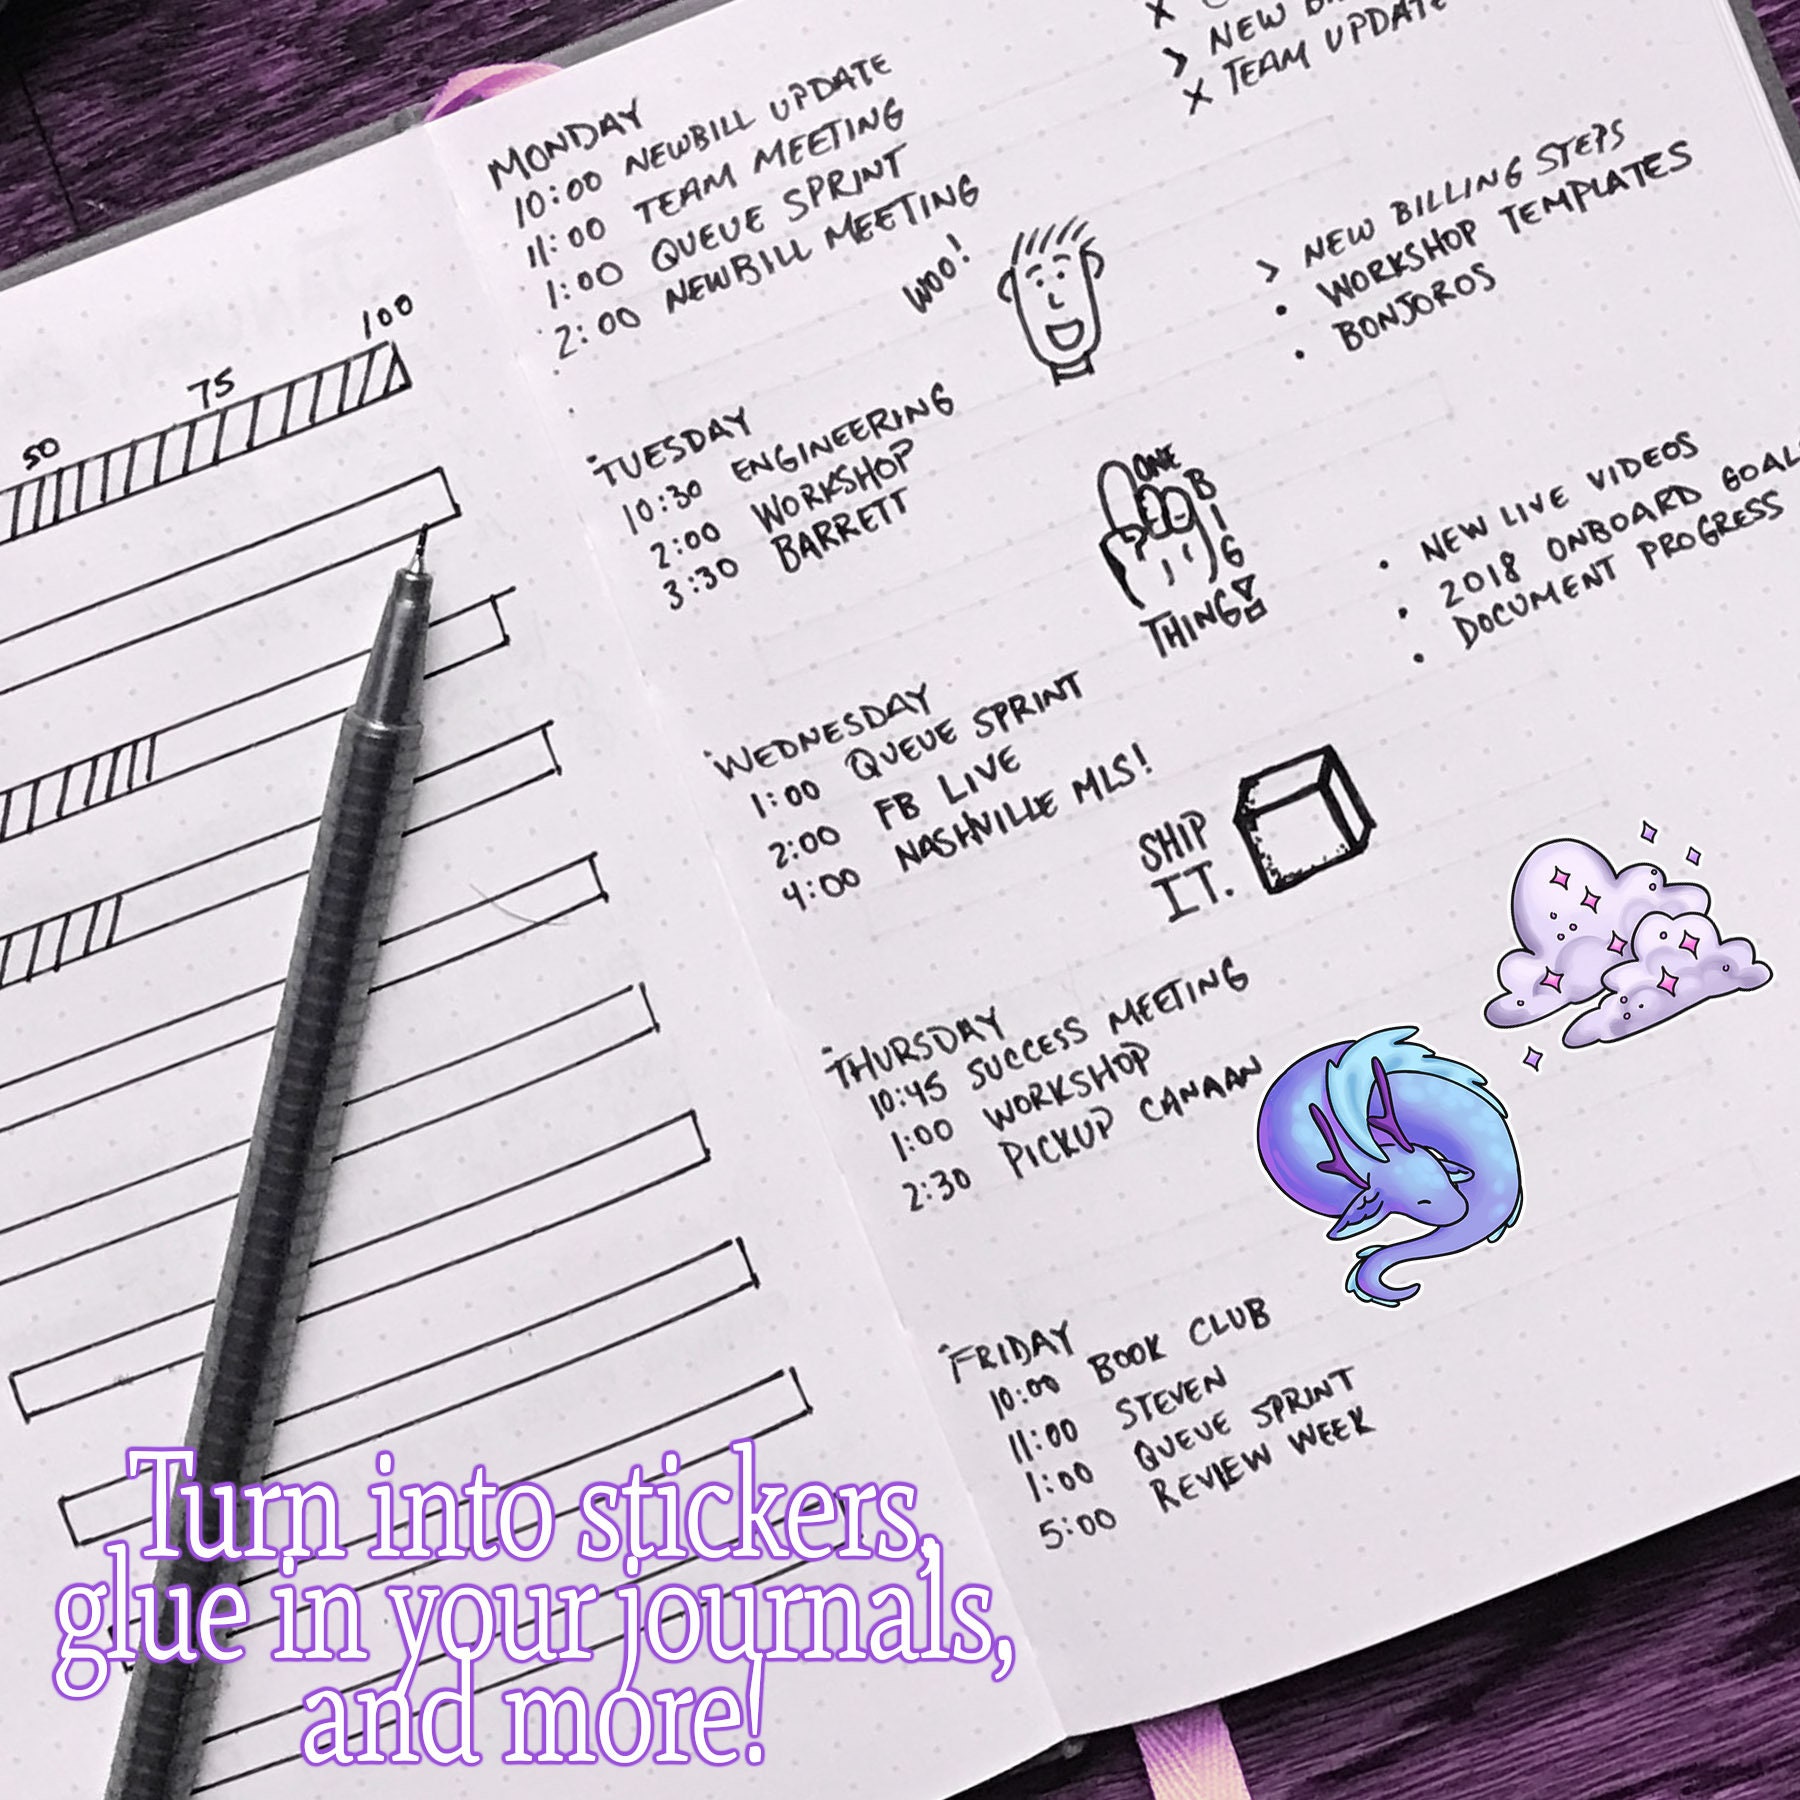 50
75
100
MONDAY
10:00 NEWBILL UPDATE
11:00 TEAM MEETING
1:00 QUEUE SPRINT
2:00 NEWBILL MEETING
WOO!
TUESDAY
10:30 ENGINEERING
2:00 WORKSHOP
3:30 BARRETT
ONE
BIG
THING!
WEDNESDAY
1:00 QUEUE SPRINT
2:00 FB LIVE
4:00 NASHVILLE MLS!
SHIP
IT.
THURSDAY
10:45 SUCCESS MEETING
1:00 WORKSHOP
2:30 PICKUP CANAAN
FRIDAY
10:00 BOOK CLUB
11:00 STEVEN
1:00 QUEUE SPRINT
5:00 REVIEW WEEK
> NEW
x TEAM UPDATE
> NEW BILLING STEPS
• WORKSHOP TEMPLATES
• BONJOROS
• NEW LIVE VIDEOS
• 2018 ONBOARD GOAL
• DOCUMENT PROGRESS
Turn into stickers,
glue in your journals,
and more!